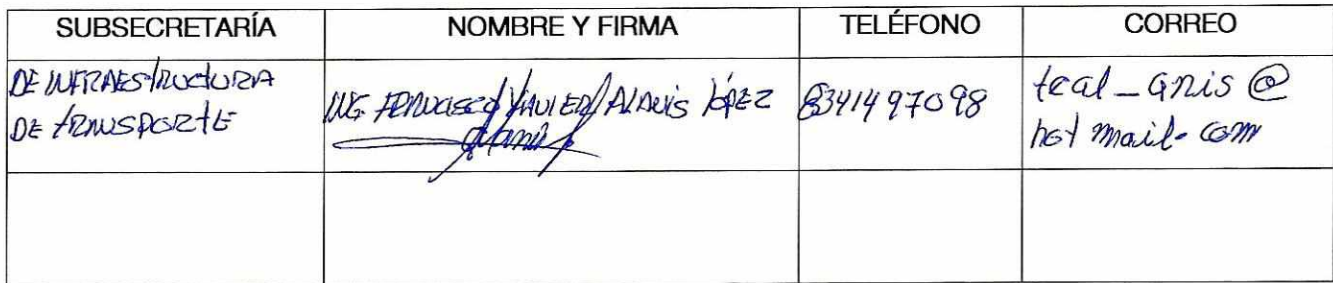 SUBSECRETARÍA NOMBRE Y FIRMA TELÉFONO CORREO
DE INFRAESTRUCTURA
DE TRANSPORTE
ING. FRANCISCO JAVIER ALANIS LÓPEZ
8341497098
tcal_gris@
hotmail.com